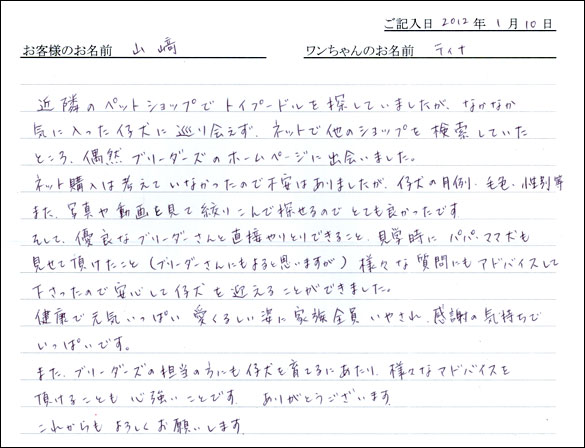 ご記入日 2012年 1月10日
お客様のお名前 山﨑 ワンちゃんのお名前 ティナ
近隣のペットショップでトイプードルを探していましたが、なかなか
気に入った仔犬に巡り会えず、ネットで他のショップを検索していた
ところ、偶然ブリーダーズのホームページに出会いました。
ネット購入は考えていなかったので不安はありましたが、仔犬の月例・毛色・性別等
また、写真や動画を見て絞りこんで探せるのでとても良かったです
そして、優良なブリーダーさんと直接やりとりできること、見学時にパパ、ママ犬も
見せて頂けたこと(ブリーダーさんにもよると思いますが)様々な質問にもアドバイスして
下さったので安心して仔犬を迎えることができました。
健康で元気いっぱい 愛くるしい姿に家族全員いやされ、感謝の気持ちで
いっぱいです。
また、ブリーダーズの担当の方にも仔犬を育てるにあたり、様々なアドバイスを
頂けることも心強いことです。 ありがとうございます
これからもよろしくお願いします